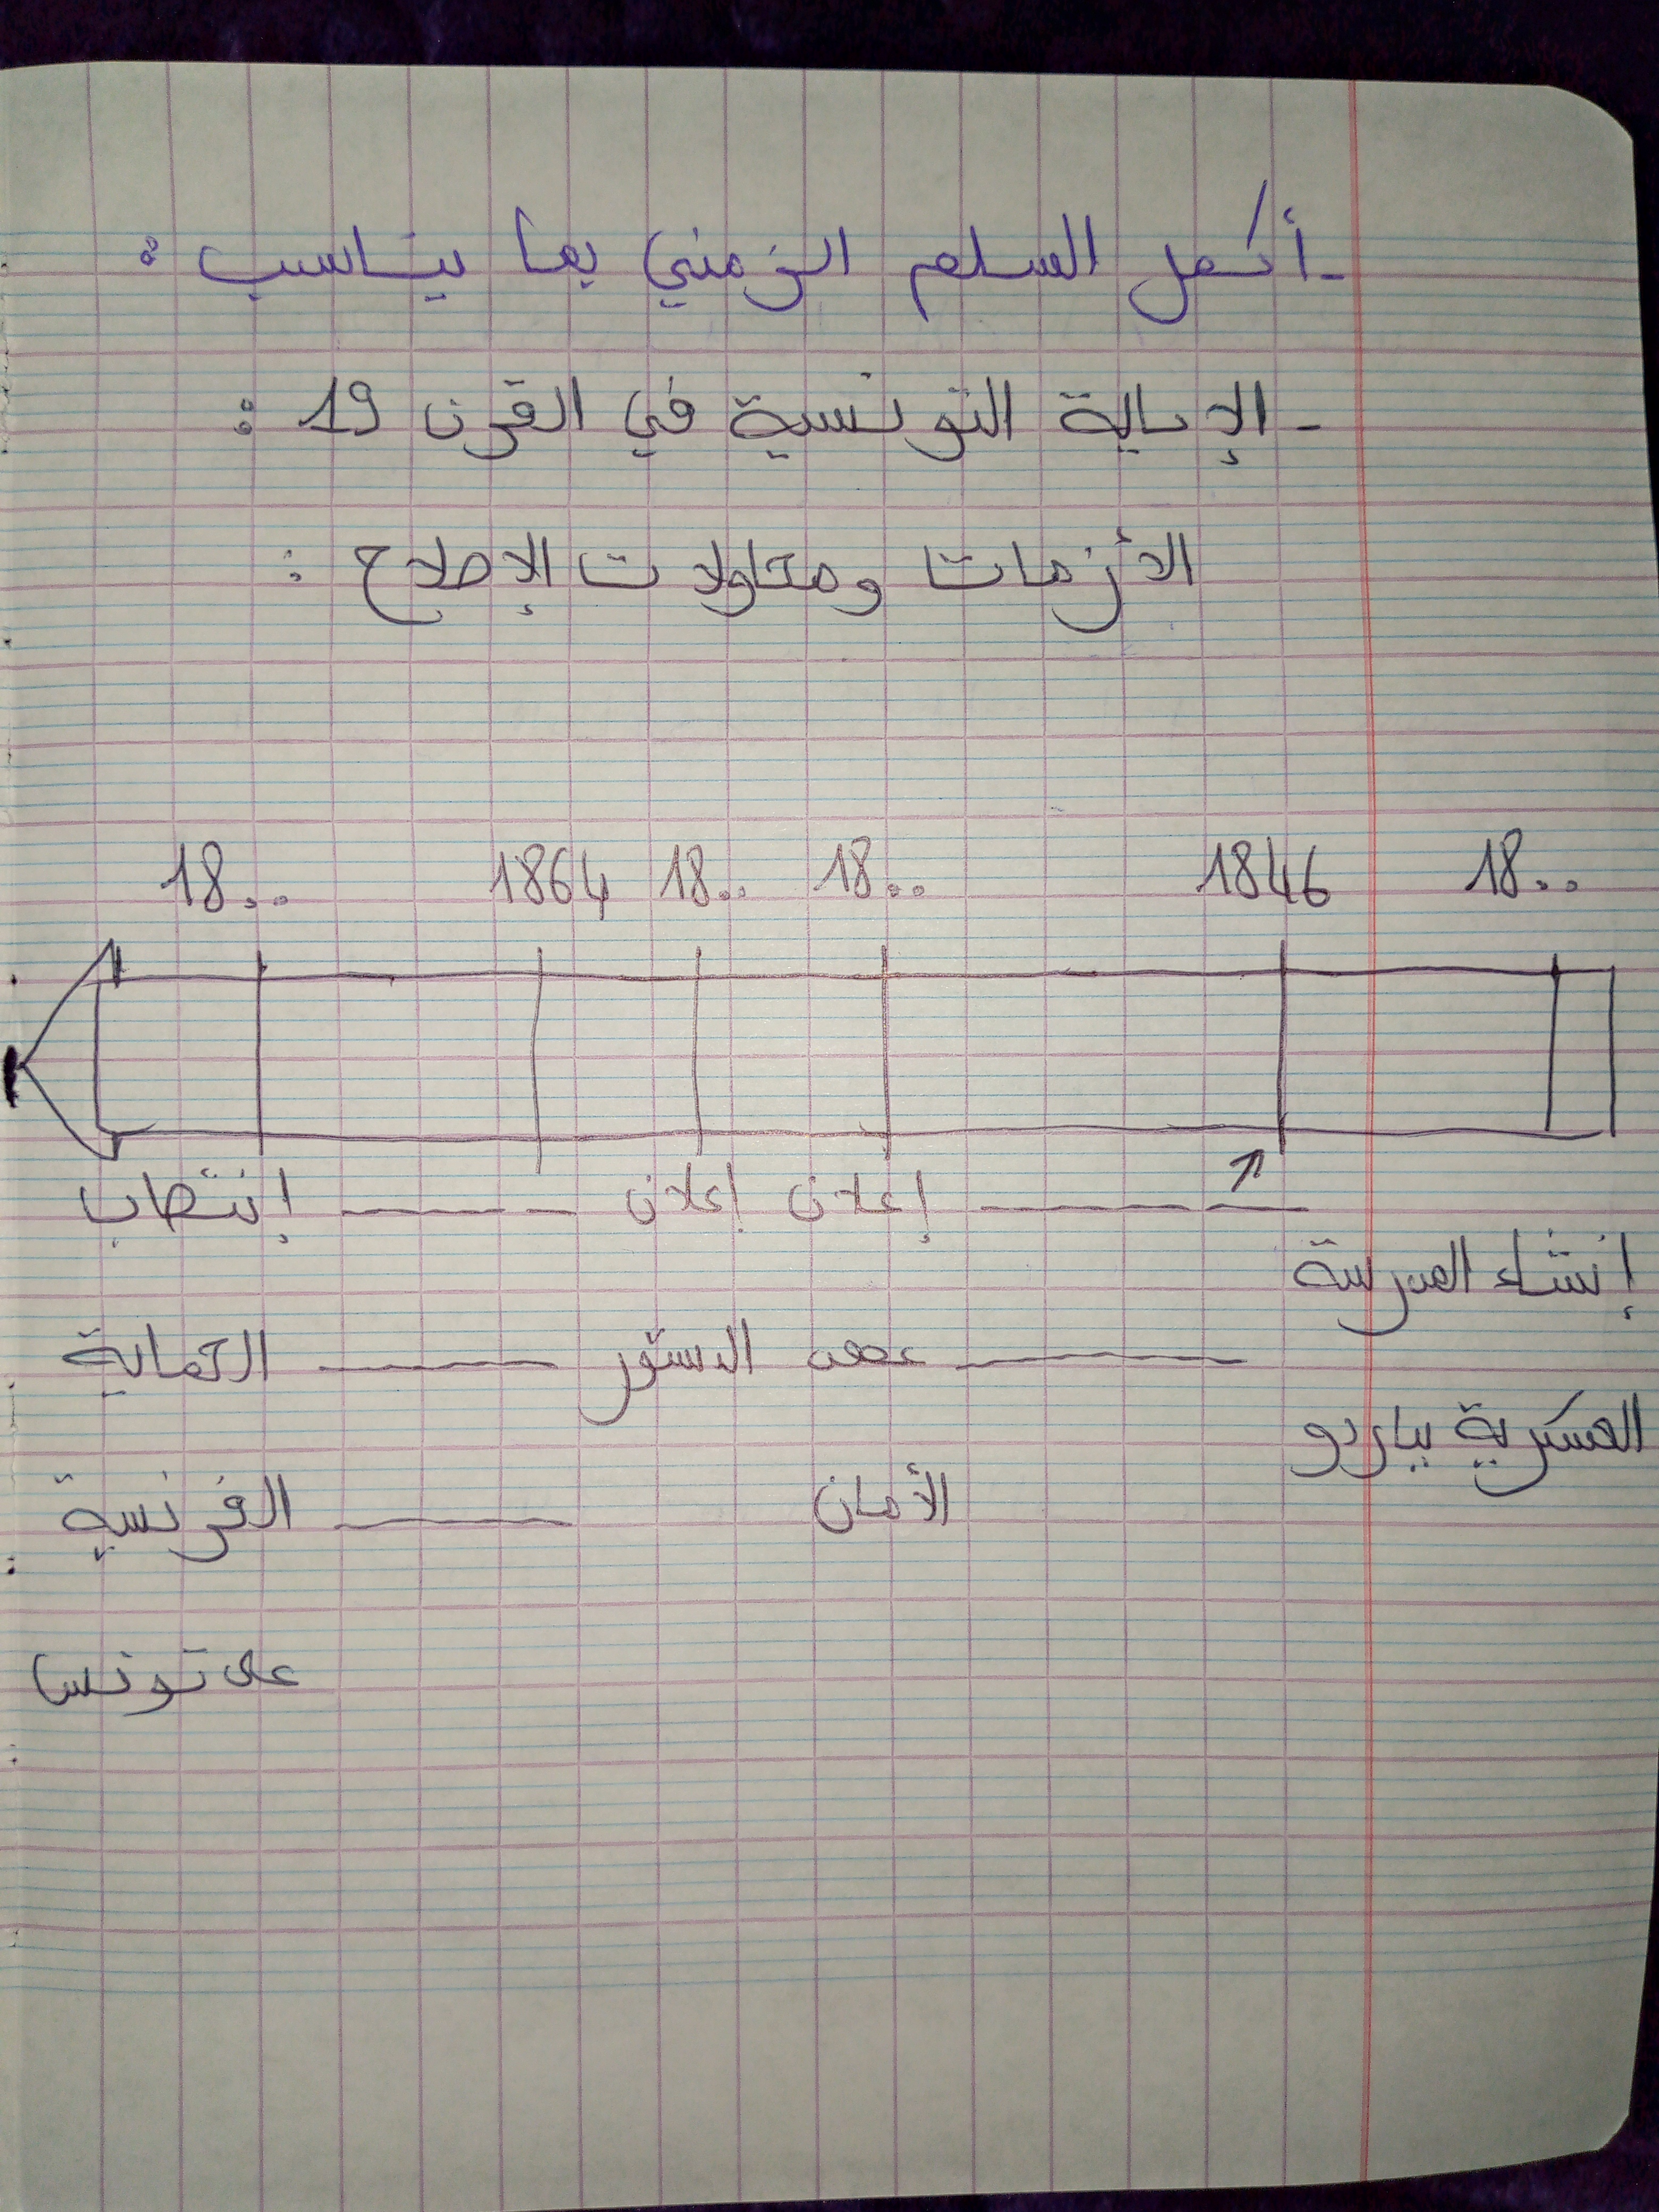 - أكمل السلم الزمني بما يناسب :
- الإيالة التونسية في القرن 19 :
الأزمات ومحاولات الإصلاح :
18.. 1846 18.. 18.. 1864 18..
إعلان إعلان إنتصاب
إنشاء المدرسة
عهد الدستور الحماية
العسكرية بباردو
الأمان الفرنسية
على تونس